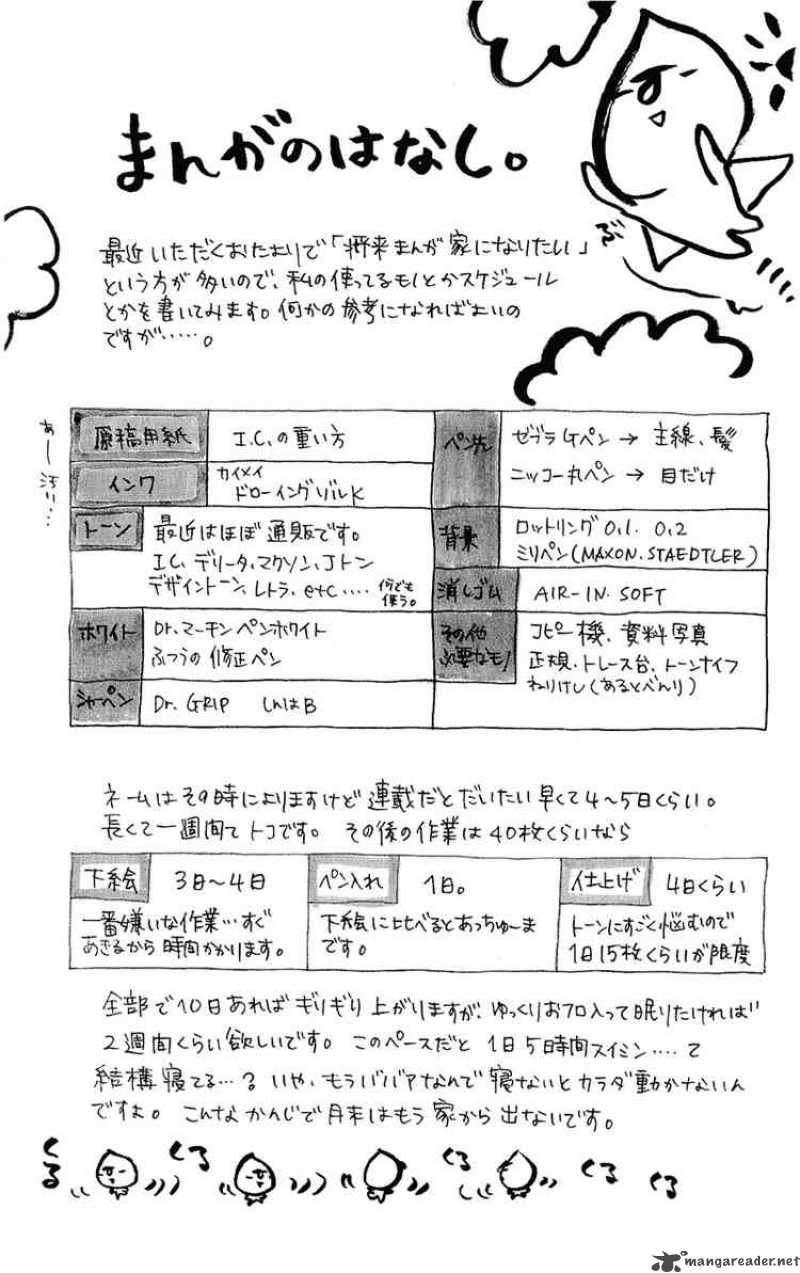 まんがのはなし。
最近いただくおたよりで「将来まんが家になりたい」
という方が多いので、私の使ってるモノとかスケジュール
とかを書いてみます。何かの参考になればよいの
ですが……。
あー汚い…
原稿用紙 I.C.の重い方
インク カイメイ
ドローイングゾルK
トーン 最近はほぼ通販です。
I.C. デリータ、マクソン、Jトン
デザイントーン、レトラ、etc.... 何でも
使う。
ホワイト Dr.マーチンペンホワイト
ふつうの修正ペン
シャーペン Dr. GRIP しんはB
ペン先 ゼブラGペン → 主線、髪
ニッコー丸ペン → 目だけ
背景 ロットリング 0.1. 0.2
ミリペン(MAXON. STAEDTLER)
消しゴム AIR-IN SOFT
その他
必要なモノ コピー機、資料写真
正規、トレース台、トーンナイフ
ねりけし(あるとべんり)
ネームはその時によりますけど連載だとだいたい早くて4〜5日くらい。
長くて一週間てトコです。その後の作業は40枚くらいなら
下絵 3日〜4日
一番嫌いな作業…すぐ
あきるから時間かかります。
ペン入れ 1日。
下絵に比べるとあっちゅーま
です。
仕上げ 4日くらい
トーンにすごく悩むので
1日15枚くらいが限度
全部で10日あればギリギリ上がりますが、ゆっくりおフロ入って眠りたければ
2週間くらい欲しいです。このペースだと1日5時間スイミン....て
結構寝てる…？いや、もうババアなんで寝ないとカラダ動かないん
ですよ。こんなかんじで月末はもう家から出ないです。
くる くる くる くる くる
mangareader.net